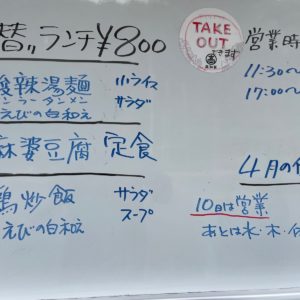 替〃ランチ¥800
酸辣湯麺 小ライス
サンラータンメン サラダ
えびの白和え
麻婆豆腐 定食
鶏炒飯 サラダ
えびの白和え スープ
TAKE
OUT
できます
営業時
11:30〜
17:00〜
4月の
10日は営業
あとは水・木・